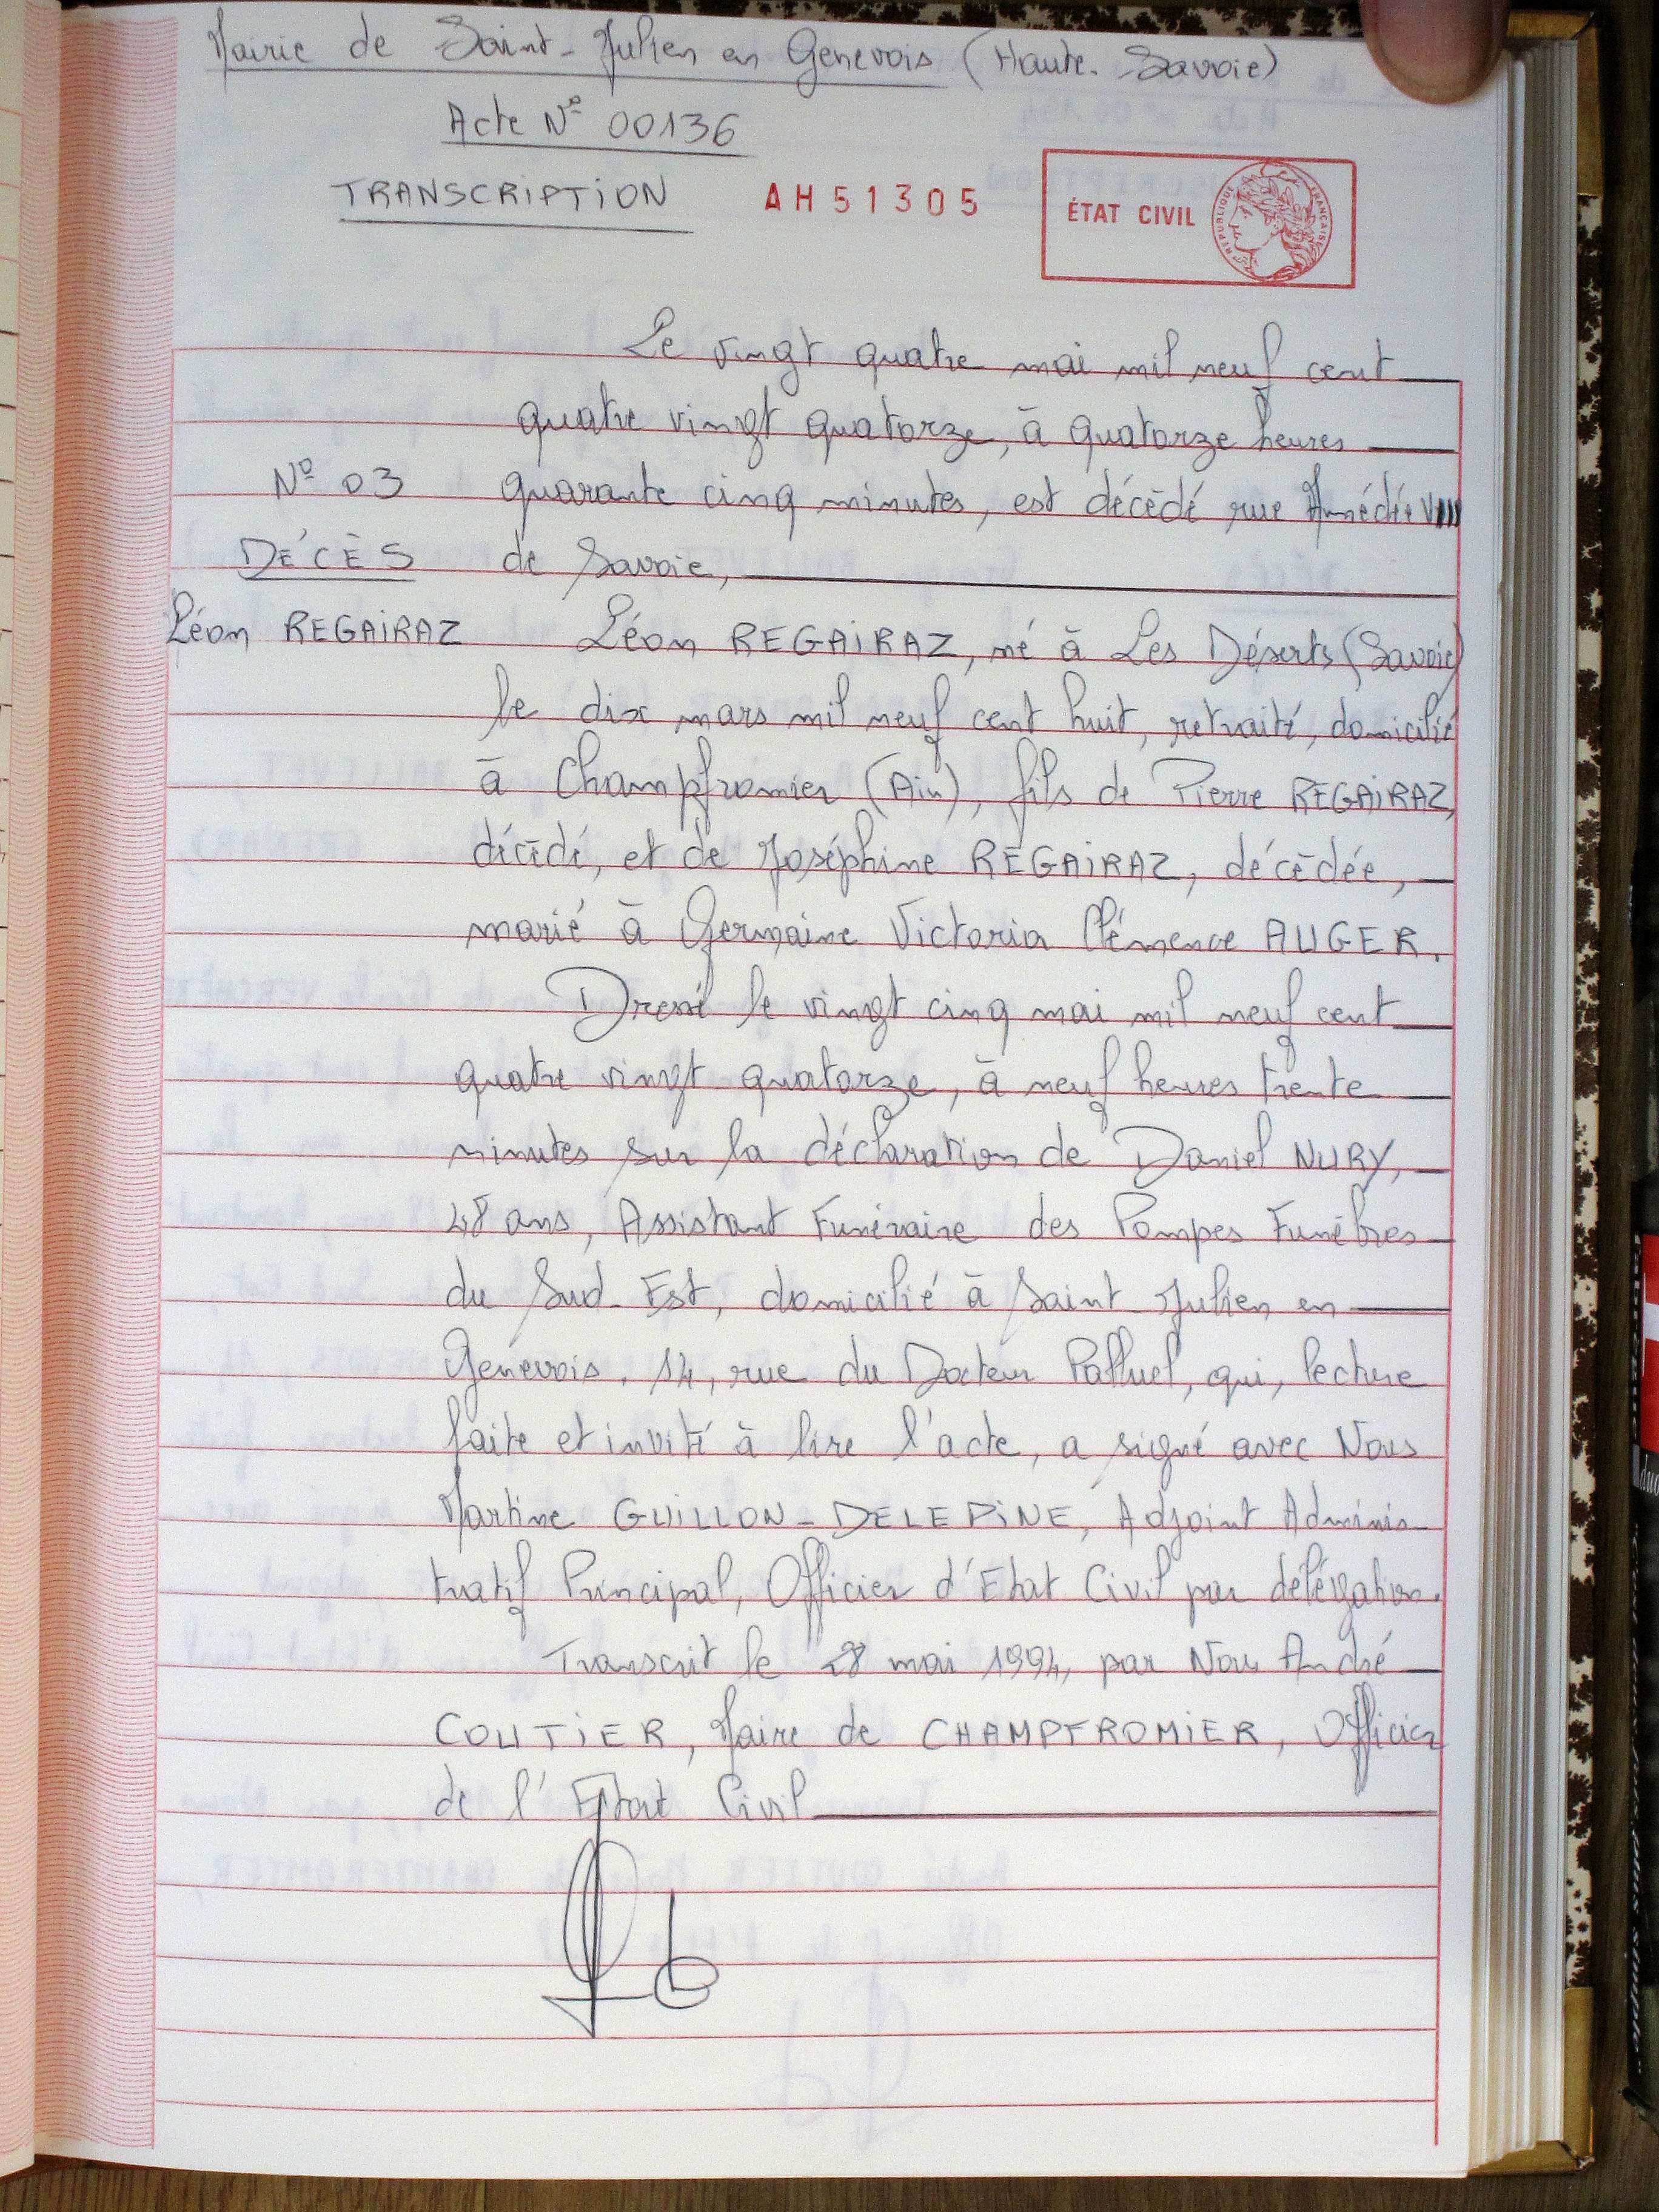 Mairie de Saint-Julien en Genevois (Haute-Savoie)
Acte N° 00136
TRANSCRIPTION
AH51305
ÉTAT CIVIL
RÉPUBLIQUE FRANÇAISE
Le vingt quatre mai mil neuf cent
quatre vingt quatorze, à quatorze heures
N° 03
quarante cinq minutes, est décédé rue Amédée VIII
DÉCÈS
de Savoie,
Léon REGAIRAZ
Léon REGAIRAZ, né à Les Déserts (Savoie)
le dix mars mil neuf cent huit, retraité, domicilié
à Champfromier (Ain), fils de Pierre REGAIRAZ,
décédé, et de Joséphine REGAIRAZ, décédée,
marié à Germaine Victoria Clémence AUGER.
Dressé le vingt cinq mai mil neuf cent
quatre vingt quatorze, à neuf heures trente
minutes sur la déclaration de Daniel NURY,
48 ans, Assistant Funéraire des Pompes Funèbres
du Sud-Est, domicilié à Saint-Julien en
Genevois, 14, rue du Docteur Palluel, qui, lecture
faite et invité à lire l'acte, a signé avec Nous
Martine GUILLON-DELEPINE, Adjoint Adminis-
tratif Principal, Officier d'Etat Civil par délégation.
Transcrit le 28 mai 1994, par Nous André
COUTIER, Maire de CHAMPFROMIER, Officier
de l'Etat Civil